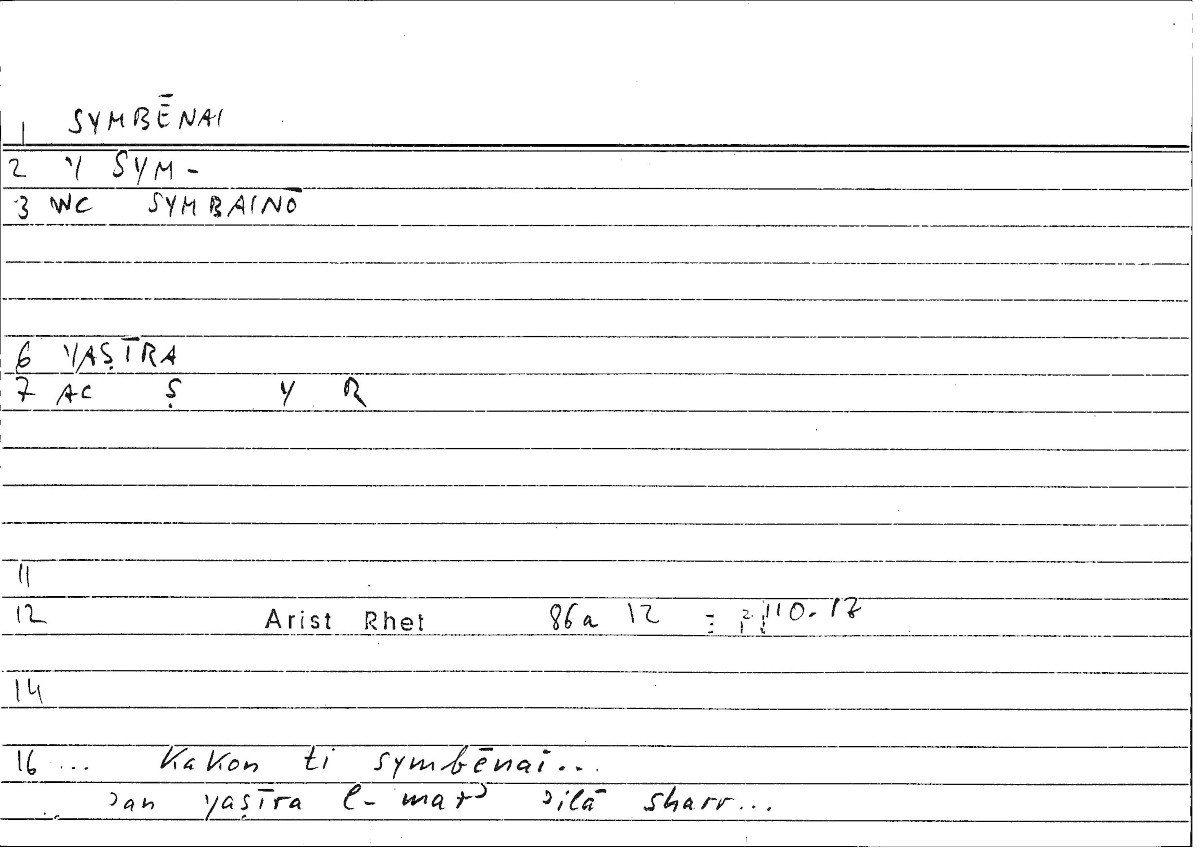 1 SYMBĒNAI
2 Y SYM-
3 WC SYMBAINŌ
6 YAṢĪRA
7 AC Ṣ Y R
11
12 Arist Rhet 86a 12 = 110.17
14
16 ... Kakon ti symbēnai...
ɔan yaṣīra l-marɔ ɔilā sharr...